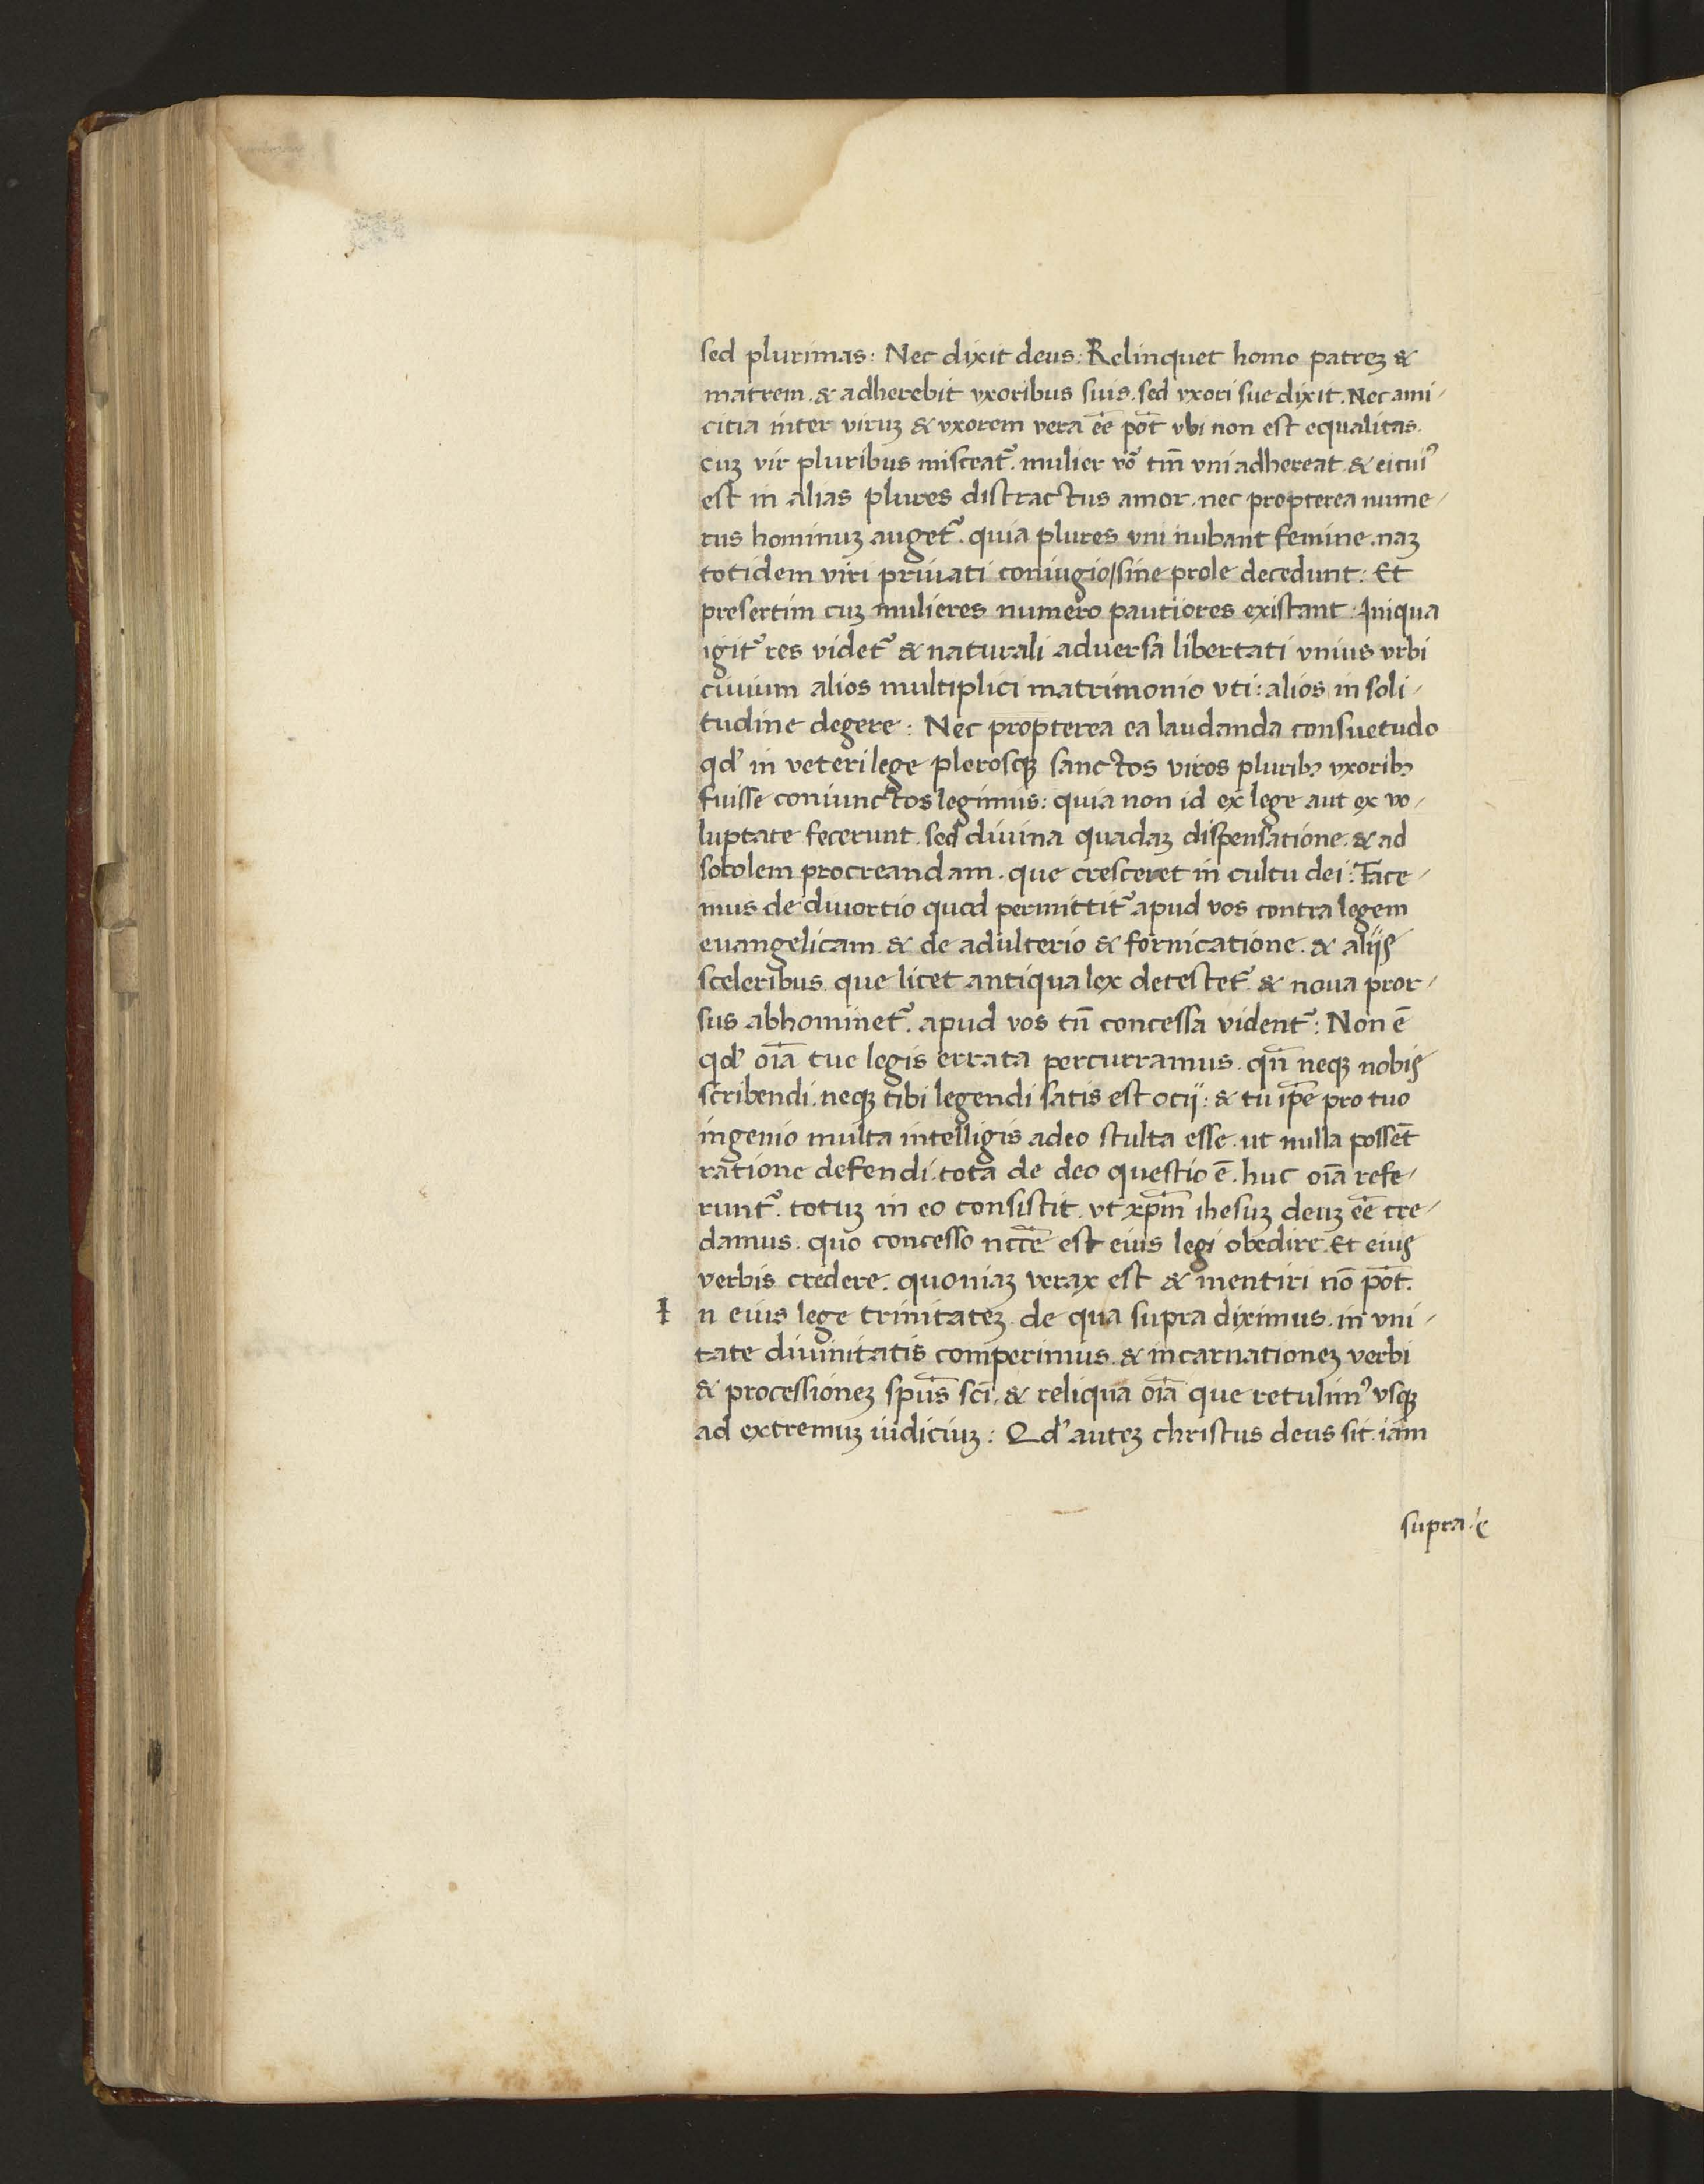 sed plurimas: Nec dixit deus: Relinquet homo patreꝫ &
matrem. & adherebit vxoribus suis. sed vxori sue dixit. Nec ami-
citia inter viruꝫ & vxorem vera eē pōt vbi non est equalitas.
cuꝫ vir pluribus misceat᷑. mulier vō tm̄ vni adhereat. & ei cui᷒
est in alias plures distractus amor. nec propterea nume-
rus hominuꝫ auget᷑. quia plures vni nubant femine. naꝫ
totidem viri priuati coniugio/sine prole decedunt: Et
presertim cuꝫ mulieres numero pautiores existant: Iniqua
igit᷑ res videt᷑ & naturali aduersa libertati vnius vrbi
ciuium alios multiplici matrimonio vti: alios in soli-
tudine degere: Nec propterea ea laudanda consuetudo
qd' in veteri lege plerosqꝫ sanctos viros pluribꝫ vxoribꝫ
fuisse coniunctos legimus: quia non id ex lege aut ex vo-
luptate fecerunt. sed diuina quadaꝫ dispensatione. & ad
sobolem procreandam. que cresceret in cultu dei: Tace-
mus de diuortio quod permittit᷑ apud vos contra legem
euangelicam. & de adulterio & fornicatione. & aliis
sceleribus que licet antiqua lex detestet᷑. & noua pror-
sus abhominet᷑. apud vos tn̄ concessa vident᷑: Non ē
qd' oīa tue legis errata percurramus. qn̄ neqꝫ nobis
scribendi. neqꝫ tibi legendi satis est ocij: & tu ip̄e pro tuo
ingenio multa intelligis adeo stulta esse. ut nulla possēt
ratione defendi. tota de deo questio ē. huc oīa refe-
runt᷑. totuꝫ in eo consistit. vt xp̄m ihesuꝫ deuꝫ eē cre-
damus. quo concesso nccē est eius legi obedire. Et eius
verbis credere. quoniaꝫ verax est & mentiri nō pōt.
I n eius lege trinitateꝫ. de qua supra diximus. in vni-
tate diuinitatis comperimus. & incarnationeꝫ verbi
& processioneꝫ spūs scī. & reliqua oīa que retulim᷒ vsqꝫ
ad extremuꝫ iudiciuꝫ: Qd' auteꝫ christus deus sit. iam
supra.